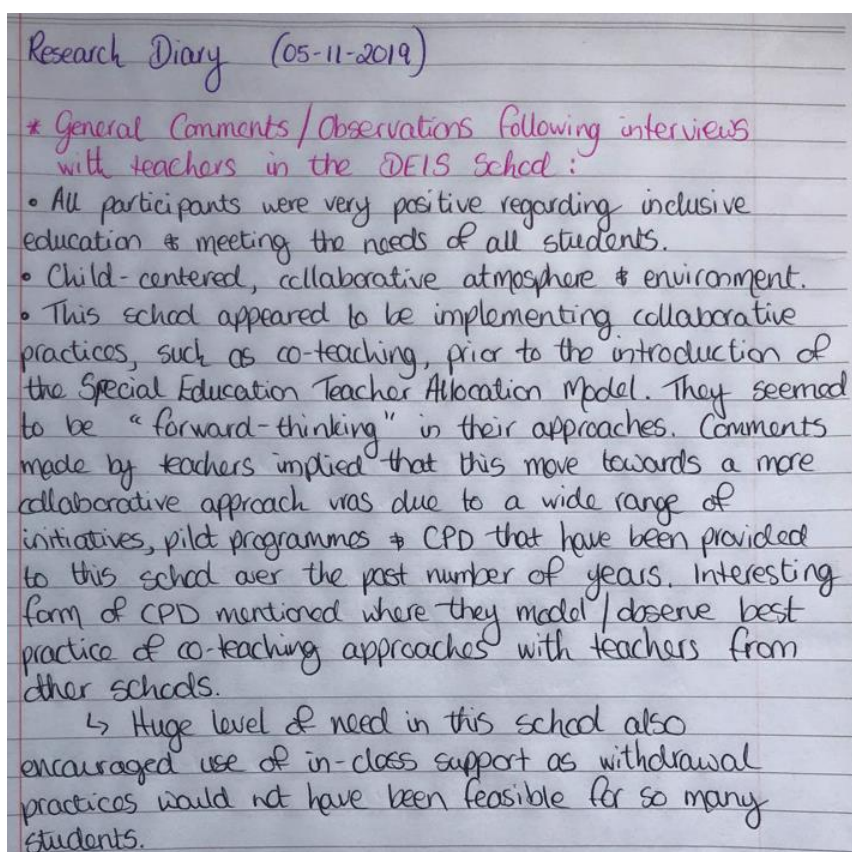 Research Diary (05-11-2019)
* General Comments / Observations following interviews
with teachers in the DEIS School :
• All participants were very positive regarding inclusive
education & meeting the needs of all students.
• Child-centered, collaborative atmosphere & environment.
• This school appeared to be implementing collaborative
practices, such as co-teaching, prior to the introduction of
the Special Education Teacher Allocation Model. They seemed
to be "forward-thinking" in their approaches. Comments
made by teachers implied that this move towards a more
collaborative approach was due to a wide range of
initiatives, pilot programmes & CPD that have been provided
to this school over the past number of years. Interesting
form of CPD mentioned where they model / observe best
practice of co-teaching approaches with teachers from
other schools.
↳ Huge level of need in this school also
encouraged use of in-class support as withdrawal
practices would not have been feasible for so many
students.